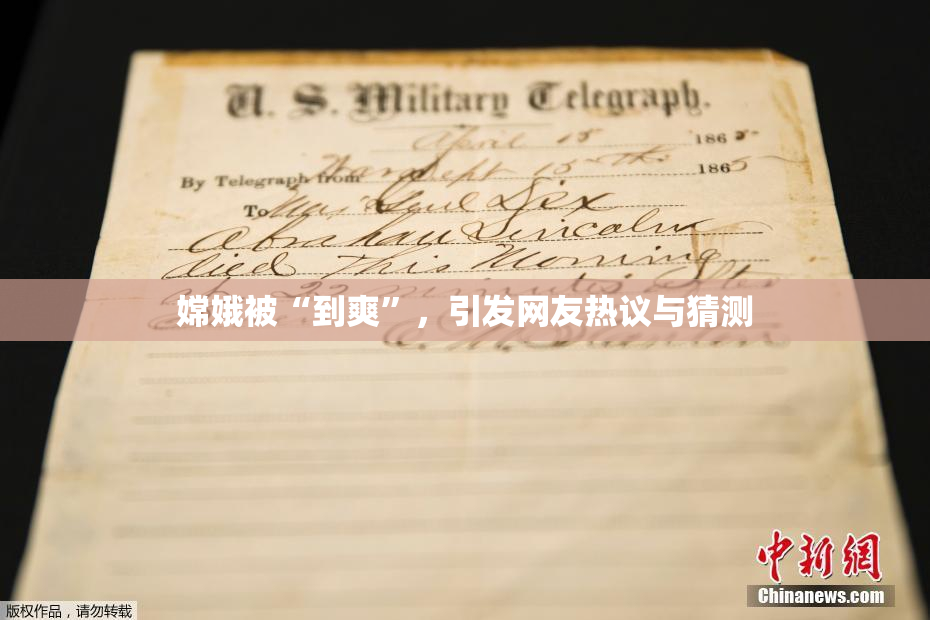 U. S. Military Telegraph.
April 15 1865
By Telegraph from War Dept 15th 1865
To Maj Genl Dix
Abraham Lincoln
died This Morning
at 22 minutes after
嫦娥被“到爽”，引发网友热议与猜测
中新网
Chinanews.com
版权作品，请勿转载